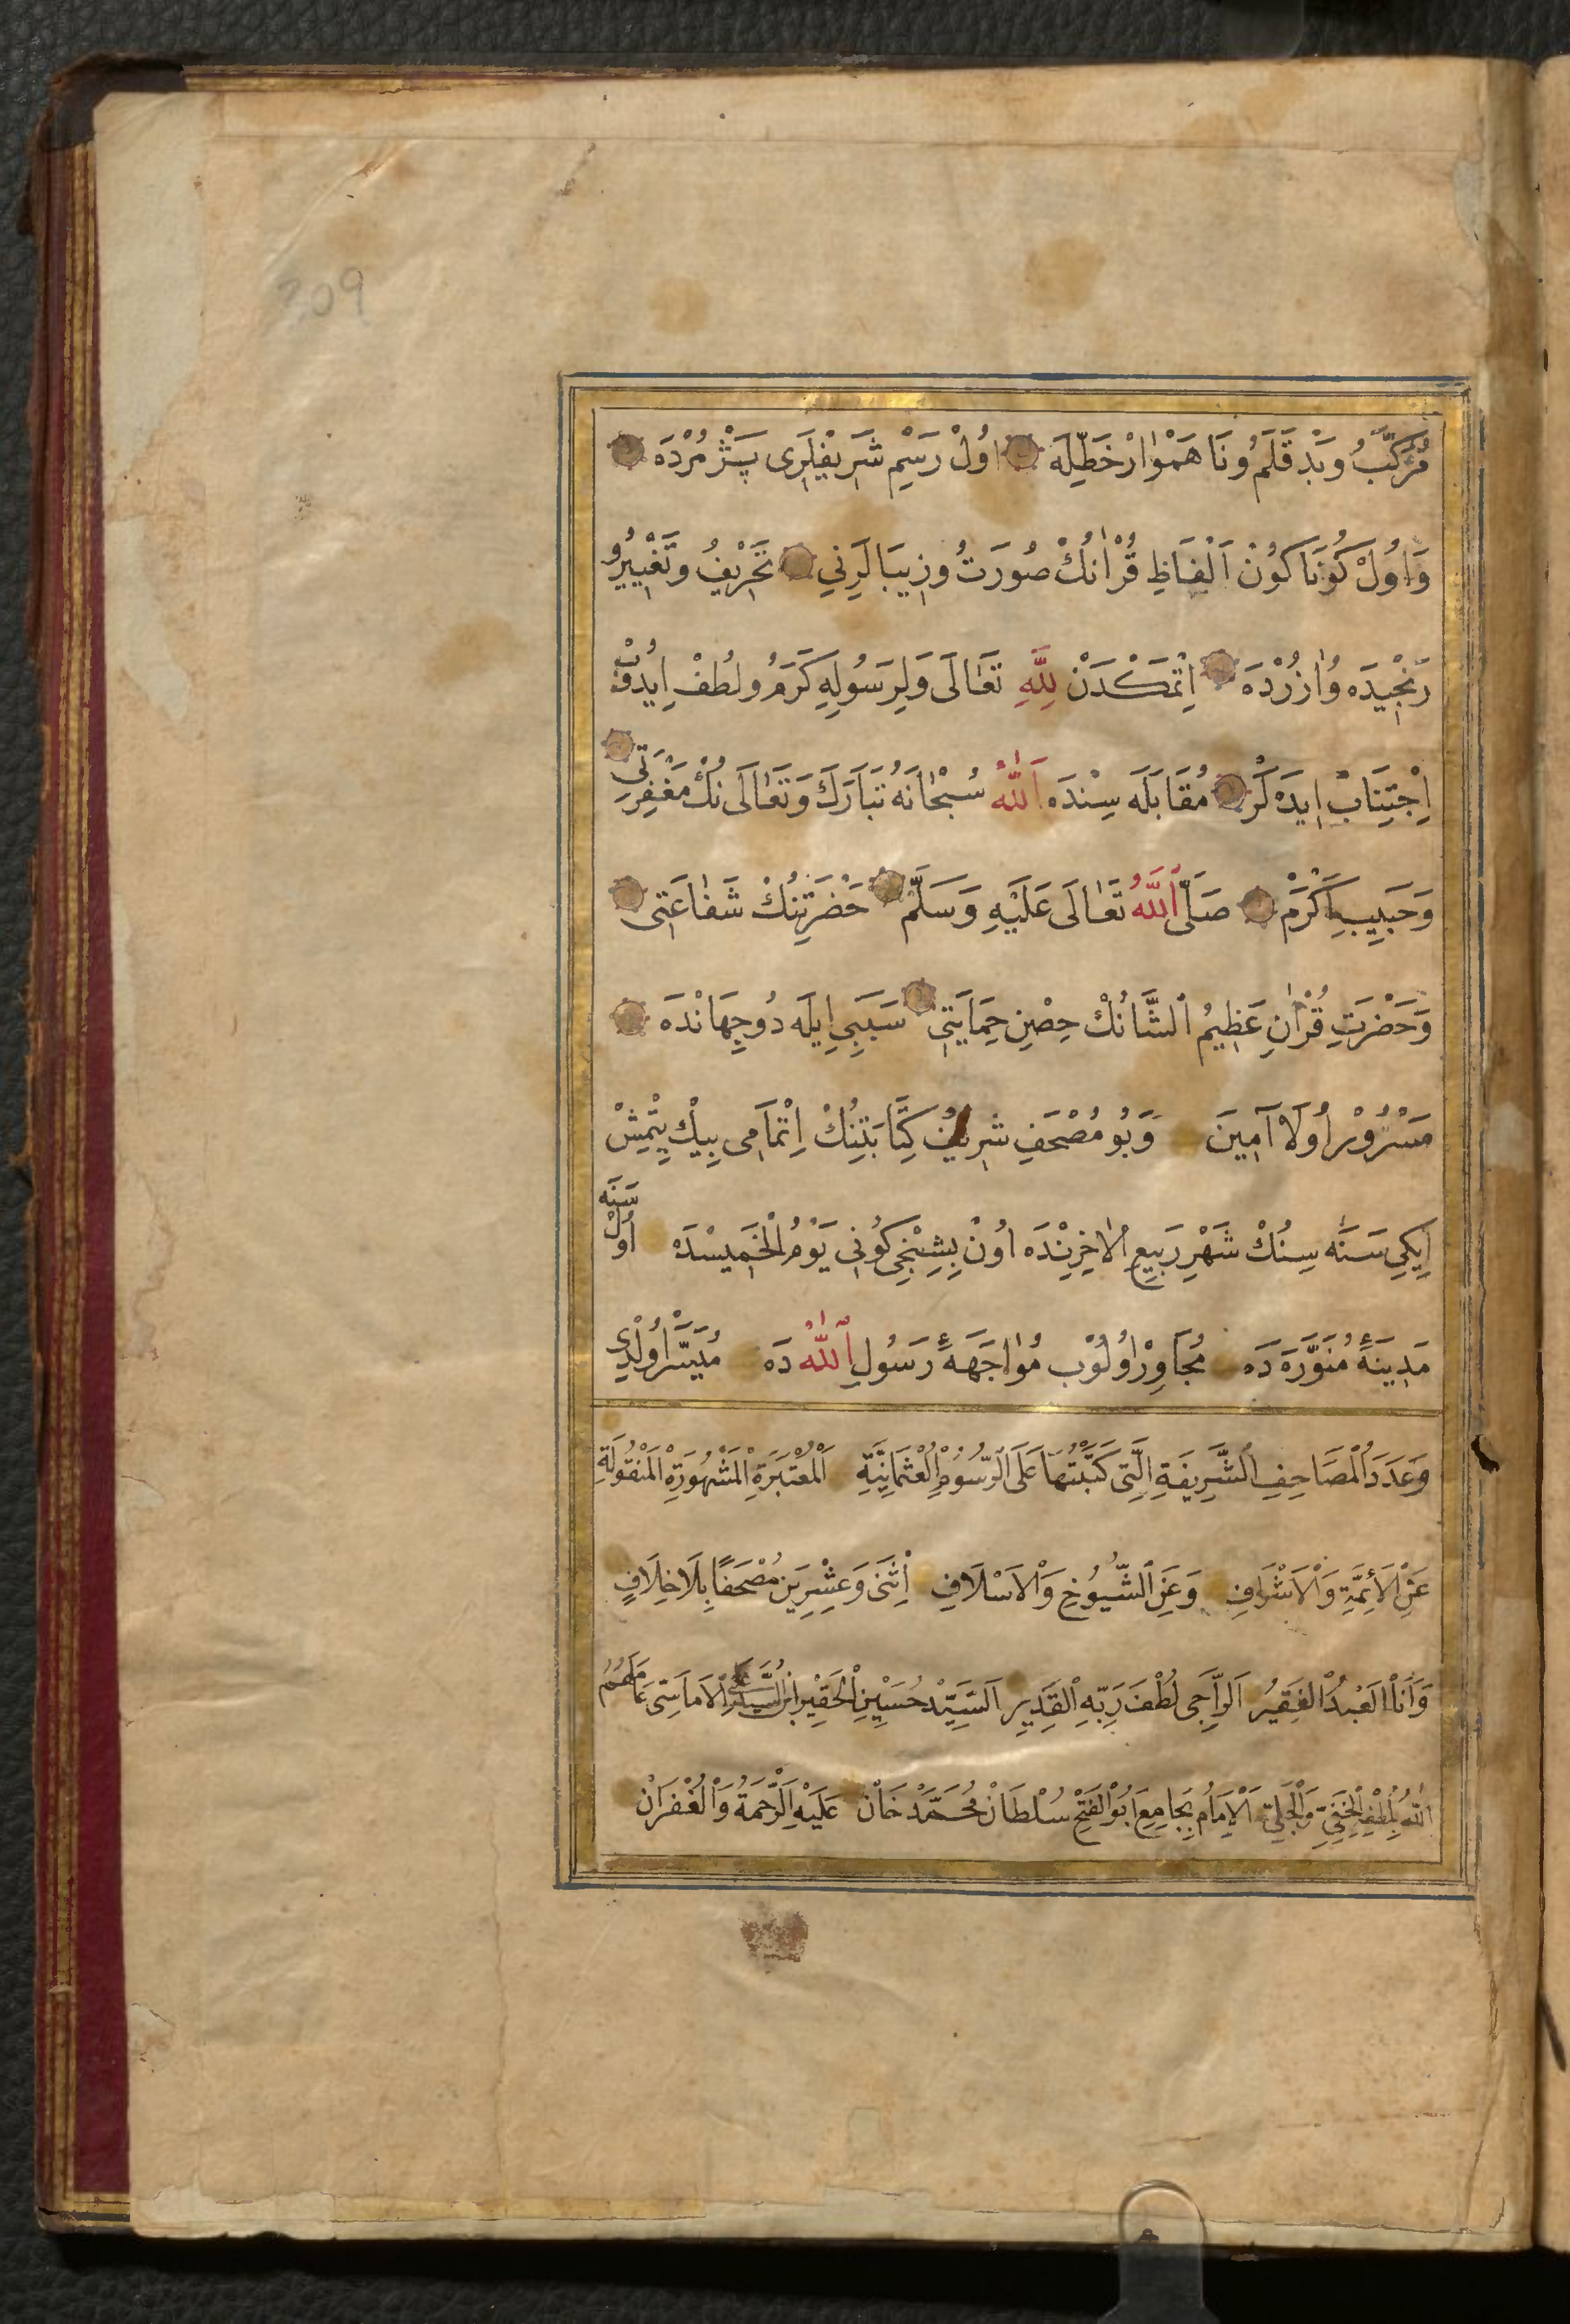 209
مُرَكَّبُ وبَدْ قَلَمُ ونَا هَمْوٰارْ خَطِّيلَه اوُلْ رَسْمِ شَرِيفْلَرِى پَژْمُرْدَه
وَاوُلْ كُونَا كُونْ اَلْفَاظِ قُرْاٰنُكْ صُورَتُ وزِيبَالَرِنِي تَحْرِيفُ وتَغْيِيرُ
رَنْجِيدَه وُاٰزُرْدَه اِتْمَكْدَنْ لِلّٰهِ تَعَالَى وَلِرَسُولِهِ كَرَمُ ولُطْفْ اِيدُوْبْ
اِجْتِنَابْ اِيدَه لَرْ مُقَابَلَه سِنْدَه اَللّٰهُ سُبْحَانَهُ تَبَارَكَ وَتَعَالَى نُكْ مَغْفِرَتِى
وَحَبِيبِ اَكْرَمْ صَلَّى اللّٰهُ تَعَالَى عَلَيْهِ وَسَلَّمْ حَضْرَتِنُكْ شَفَاعَتِى
وَحَضْرَتِ قُرْاٰنِ عَظِيمُ الشَّانُكْ حِصْنِ حِمَايَتِى سَبَبِي اِيلَه دُوجِهَانْدَه
مَسْرُورْ اُولَا آمِينَ وَبُو مُصْحَفِ شَرِيفُ كِتَابَتِنُكْ اِتْمَامِى بِيكْ يِتْمِشْ
اِيكِي سَنَه سِنُكْ شَهْرِ رَبِيعِ الْاٰخِرِنْدَه اوُنْ بِشِنْجِى كُونِى يَوْمُ الْخَمِيسْدَه اُولْ سَنَه
مَدِينَۀِ مُنَوَّرَه دَه مُجَاوِرْ اوُلُوبْ مُوٰاجَهَۀِ رَسُولِ اللّٰهْ دَه مُيَسَّرْ اُولْدِى
وَعَدَدُ الْمَصَاحِفِ الشَّرِيفَةِ الَّتِى كَتَبْتُهَا عَلَى الرُّسُومِ الْعُثْمَانِيَّةِ اَلْمُعْتَبَرَةِ الْمَشْهُورَةِ الْمَنْقُولَةِ
عَنِ الْاَئِمَّةِ وَالْاَشْرَافِ وَعَنِ الشُّيُوخِ وَالْاَسْلَافِ اِثْنَى وَعِشْرِينَ مُصْحَفًا بِلَا خِلَافٍ
وَاَنَا الْعَبْدُ الْفَقِيرُ اَلرَّاجِى لُطْفَ رَبِّهِ الْقَدِيرِ اَلسَّيِّدْ حُسَيْنِ الْحَقِيرِ ابْنُ السَّيِّدْ عَلِىِّ الْاَمَاسِىّ عَامَلَهُمُ
اللّٰهُ بِلُطْفِهِ الْخَفِىِّ وَالْجَلِىِّ اَلْاِمَامُ بِجَامِعِ اَبُو الْفَتْحِ سُلْطَانْ مُحَمَّدْ خَانْ عَلَيْهِ الرَّحْمَةُ وَالْغُفْرَانُ